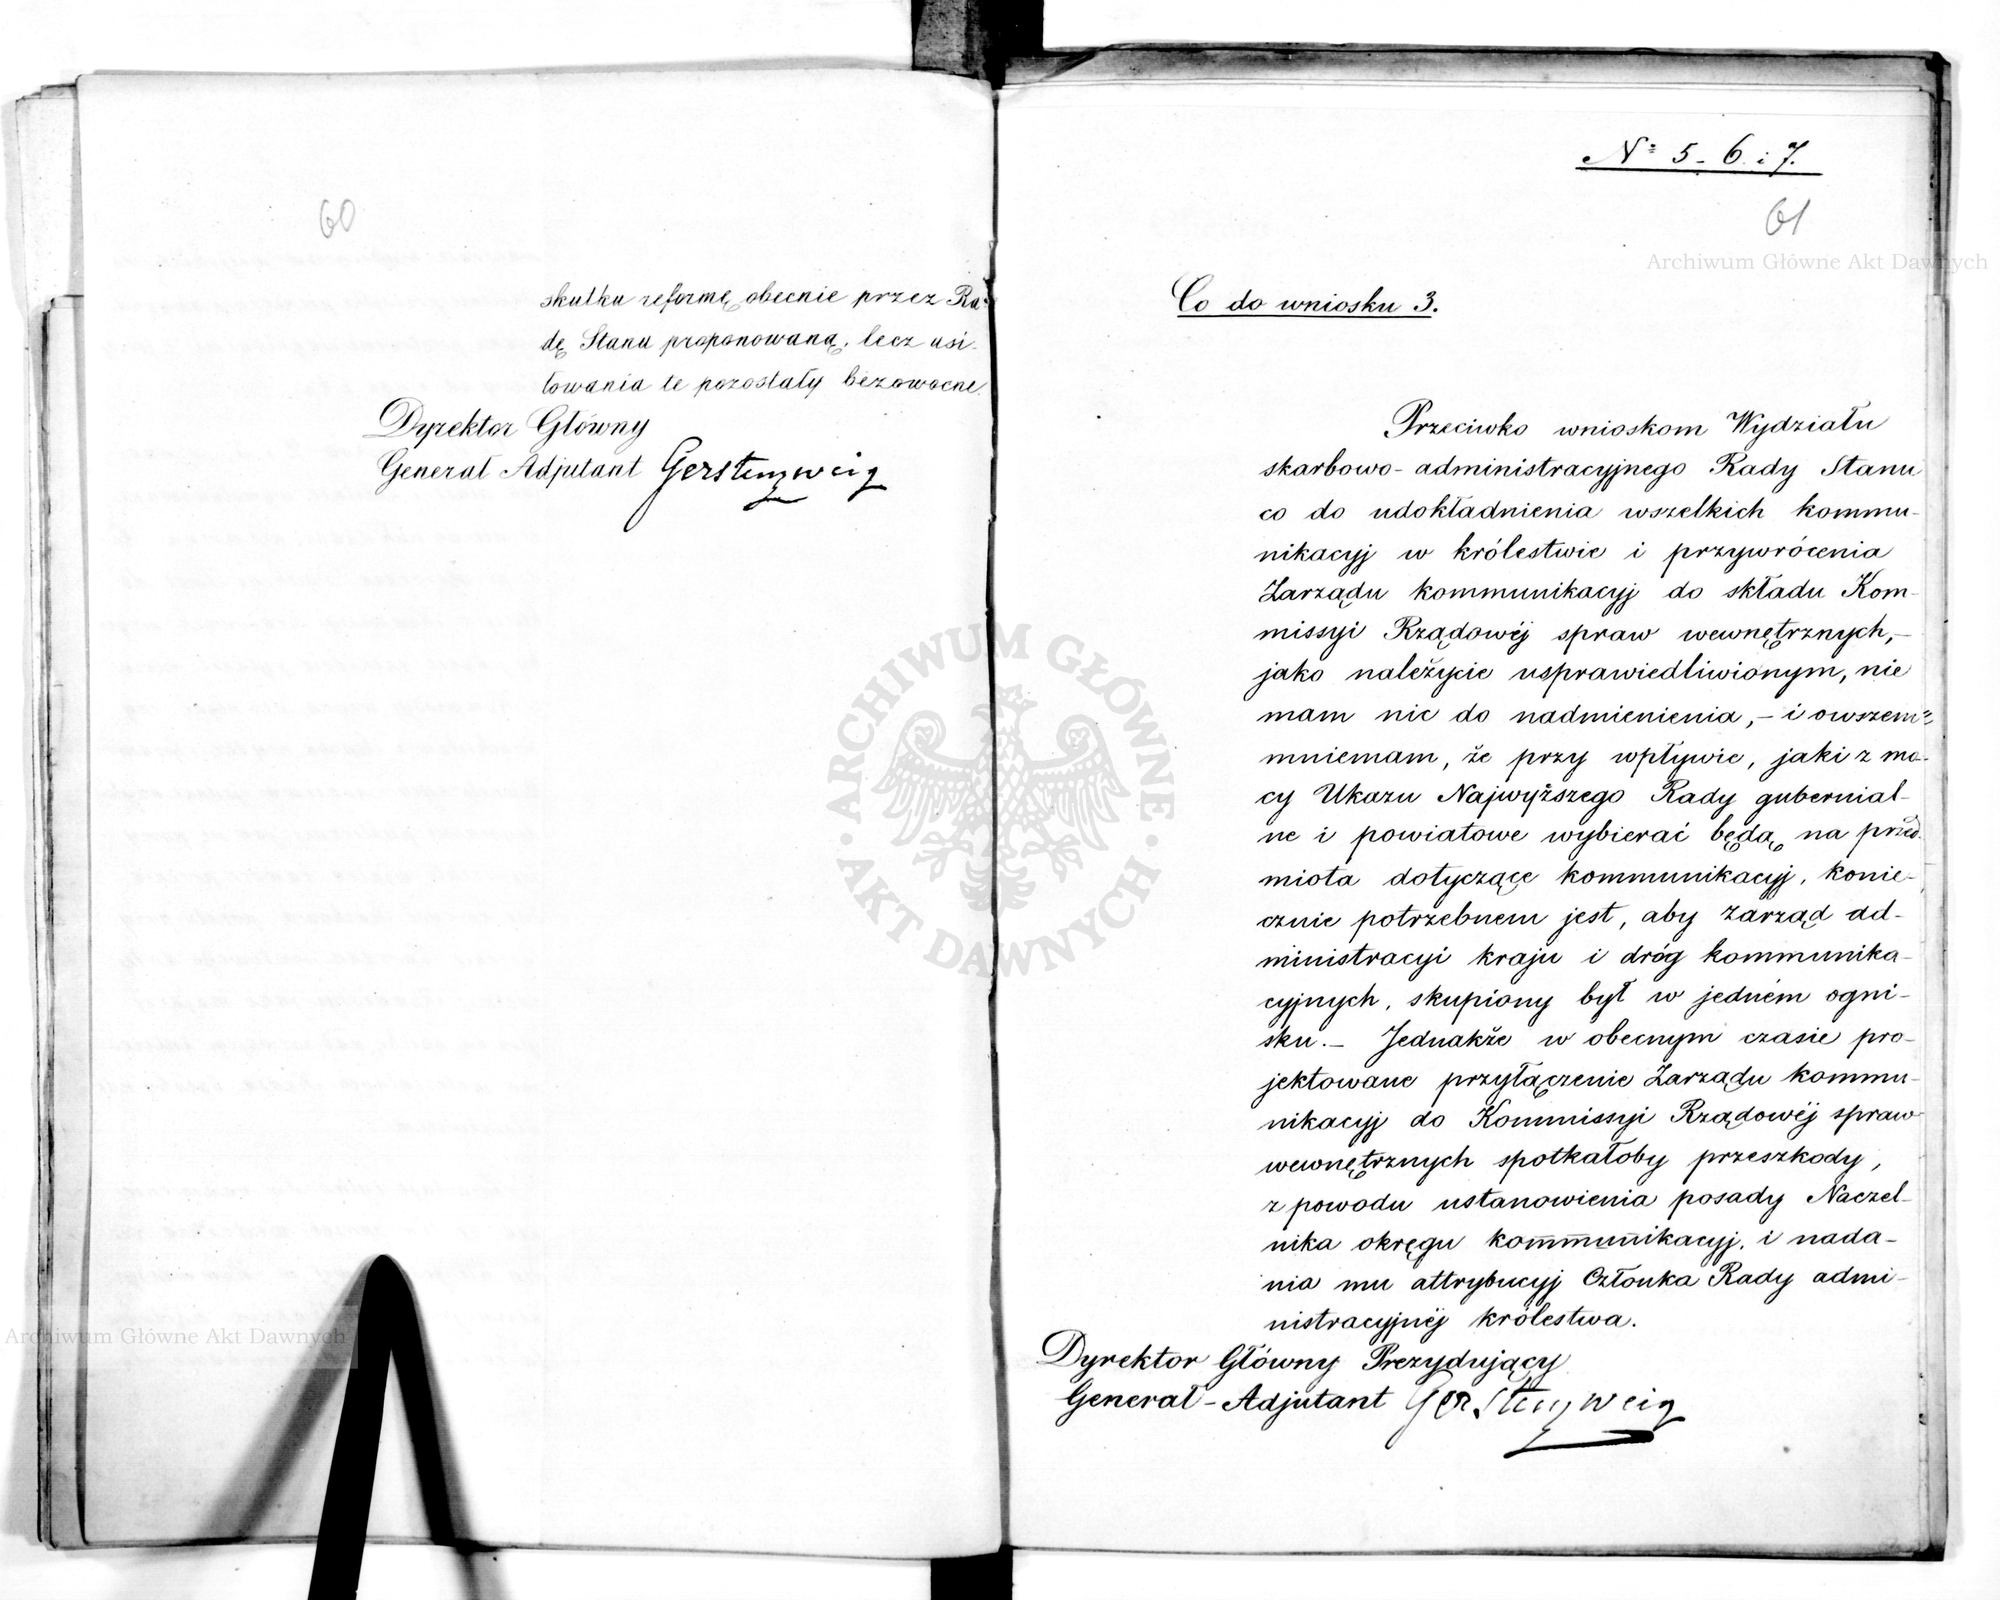 60
skutku reformę obecnie przez Ra-
dę Stanu proponowaną, lecz usi-
łowania te pozostały bezowocne.
Dyrektor Główny
Generał Adjutant Gerstenzweig
Nº 5 - 6. i 7.
61
Archiwum Główne Akt Dawnych
Co do wniosku 3.
Przeciwko wnioskom Wydziału
skarbowo-administracyjnego Rady Stanu
co do udokładnienia wszelkich kommu-
nikacyj w królestwie i przywrócenia
Zarządu kommunikacyj do składu Kom-
missyi Rządowéj spraw wewnętrznych,-
jako należycie usprawiedliwionym, nie
mam nic do nadmienienia,- i owszem
mniemam, że przy wpływie, jaki z mo-
cy Ukazu Najwyższego Rady gubernial-
ne i powiatowe wybierać będą na przed-
miota dotyczące kommunikacyj, konie-
cznie potrzebnem jest, aby zarząd ad-
ministracyi kraju i dróg kommunika-
cyjnych, skupiony był w jedném ogni-
sku.- Jednakże w obecnym czasie pro-
jektowane przyłączenie Zarządu kommu-
nikacyj do Kommissyi Rządowéj spraw
wewnętrznych spotkałoby przeszkody,
z powodu ustanowienia posady Naczel-
nika okręgu kommunikacyj, i nada-
nia mu attrybucyj Członka Rady admi-
nistracyjnéj królestwa.
Dyrektor Główny Prezydujący
Generał-Adjutant Gerstenzweig
ARCHIWUM GŁÓWNE AKT DAWNYCH
Archiwum Główne Akt Dawnych